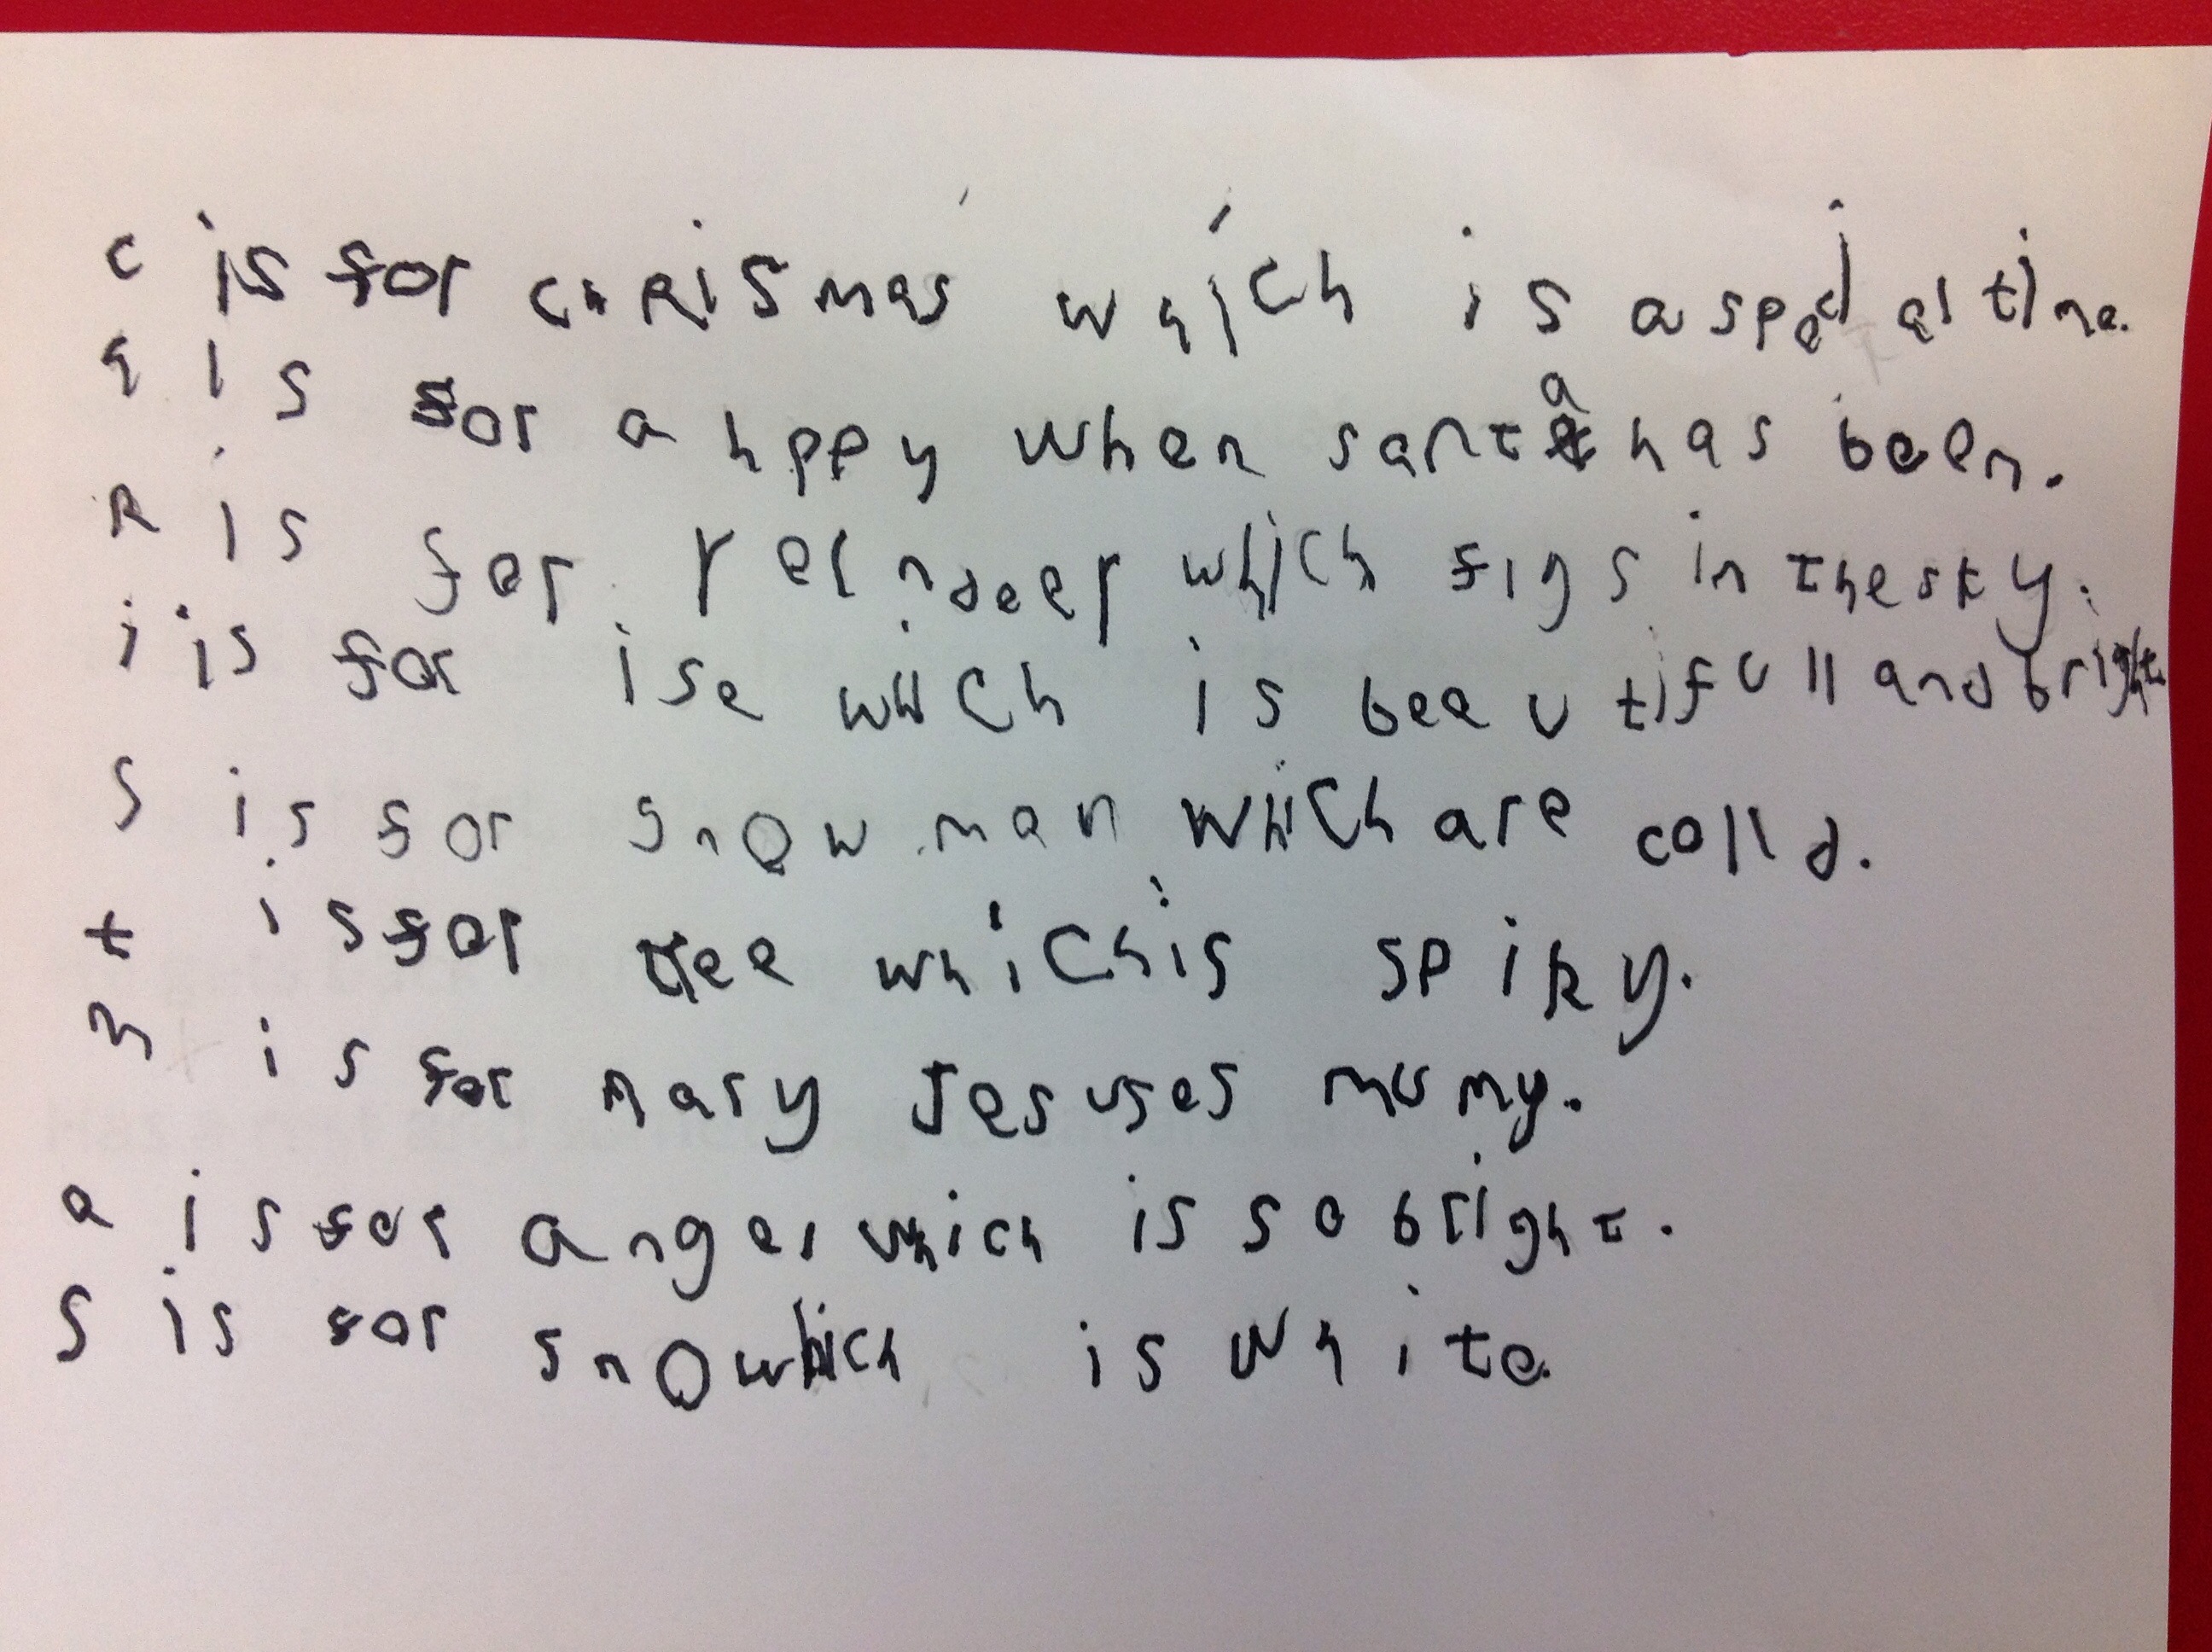 c is for chRismas which is a special time.
h is for a hppy when santa has been.
R is for reindeer which figs in the sky.
i is for ise which is beeutifull and bright
s is for snow man which are colld.
t is for tree which is spiky.
m is for mary Jesuses mumy.
a is for angel which is so bright.
s is for snowhich is white